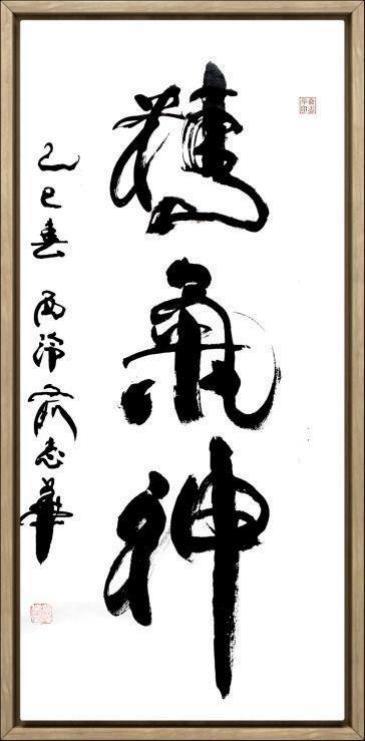 精氣神
乙巳春 西泠 俞志華